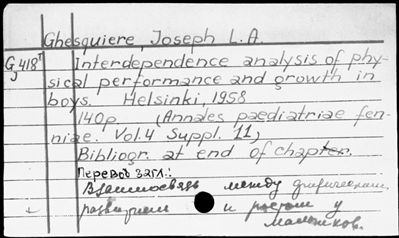 Ghesquiere, Joseph L.A.
G 418 Interdependence analysis of phy-
sical performance and growth in
boys. Helsinki, 1958
140p. (Annales paediatriae fen-
niae. Vol.4 Suppl. 11)
Bibliogr. at end of chapter.
Перевод загл.:
Взаимосвязь между физическим
развитием и ростом у
мальчиков.